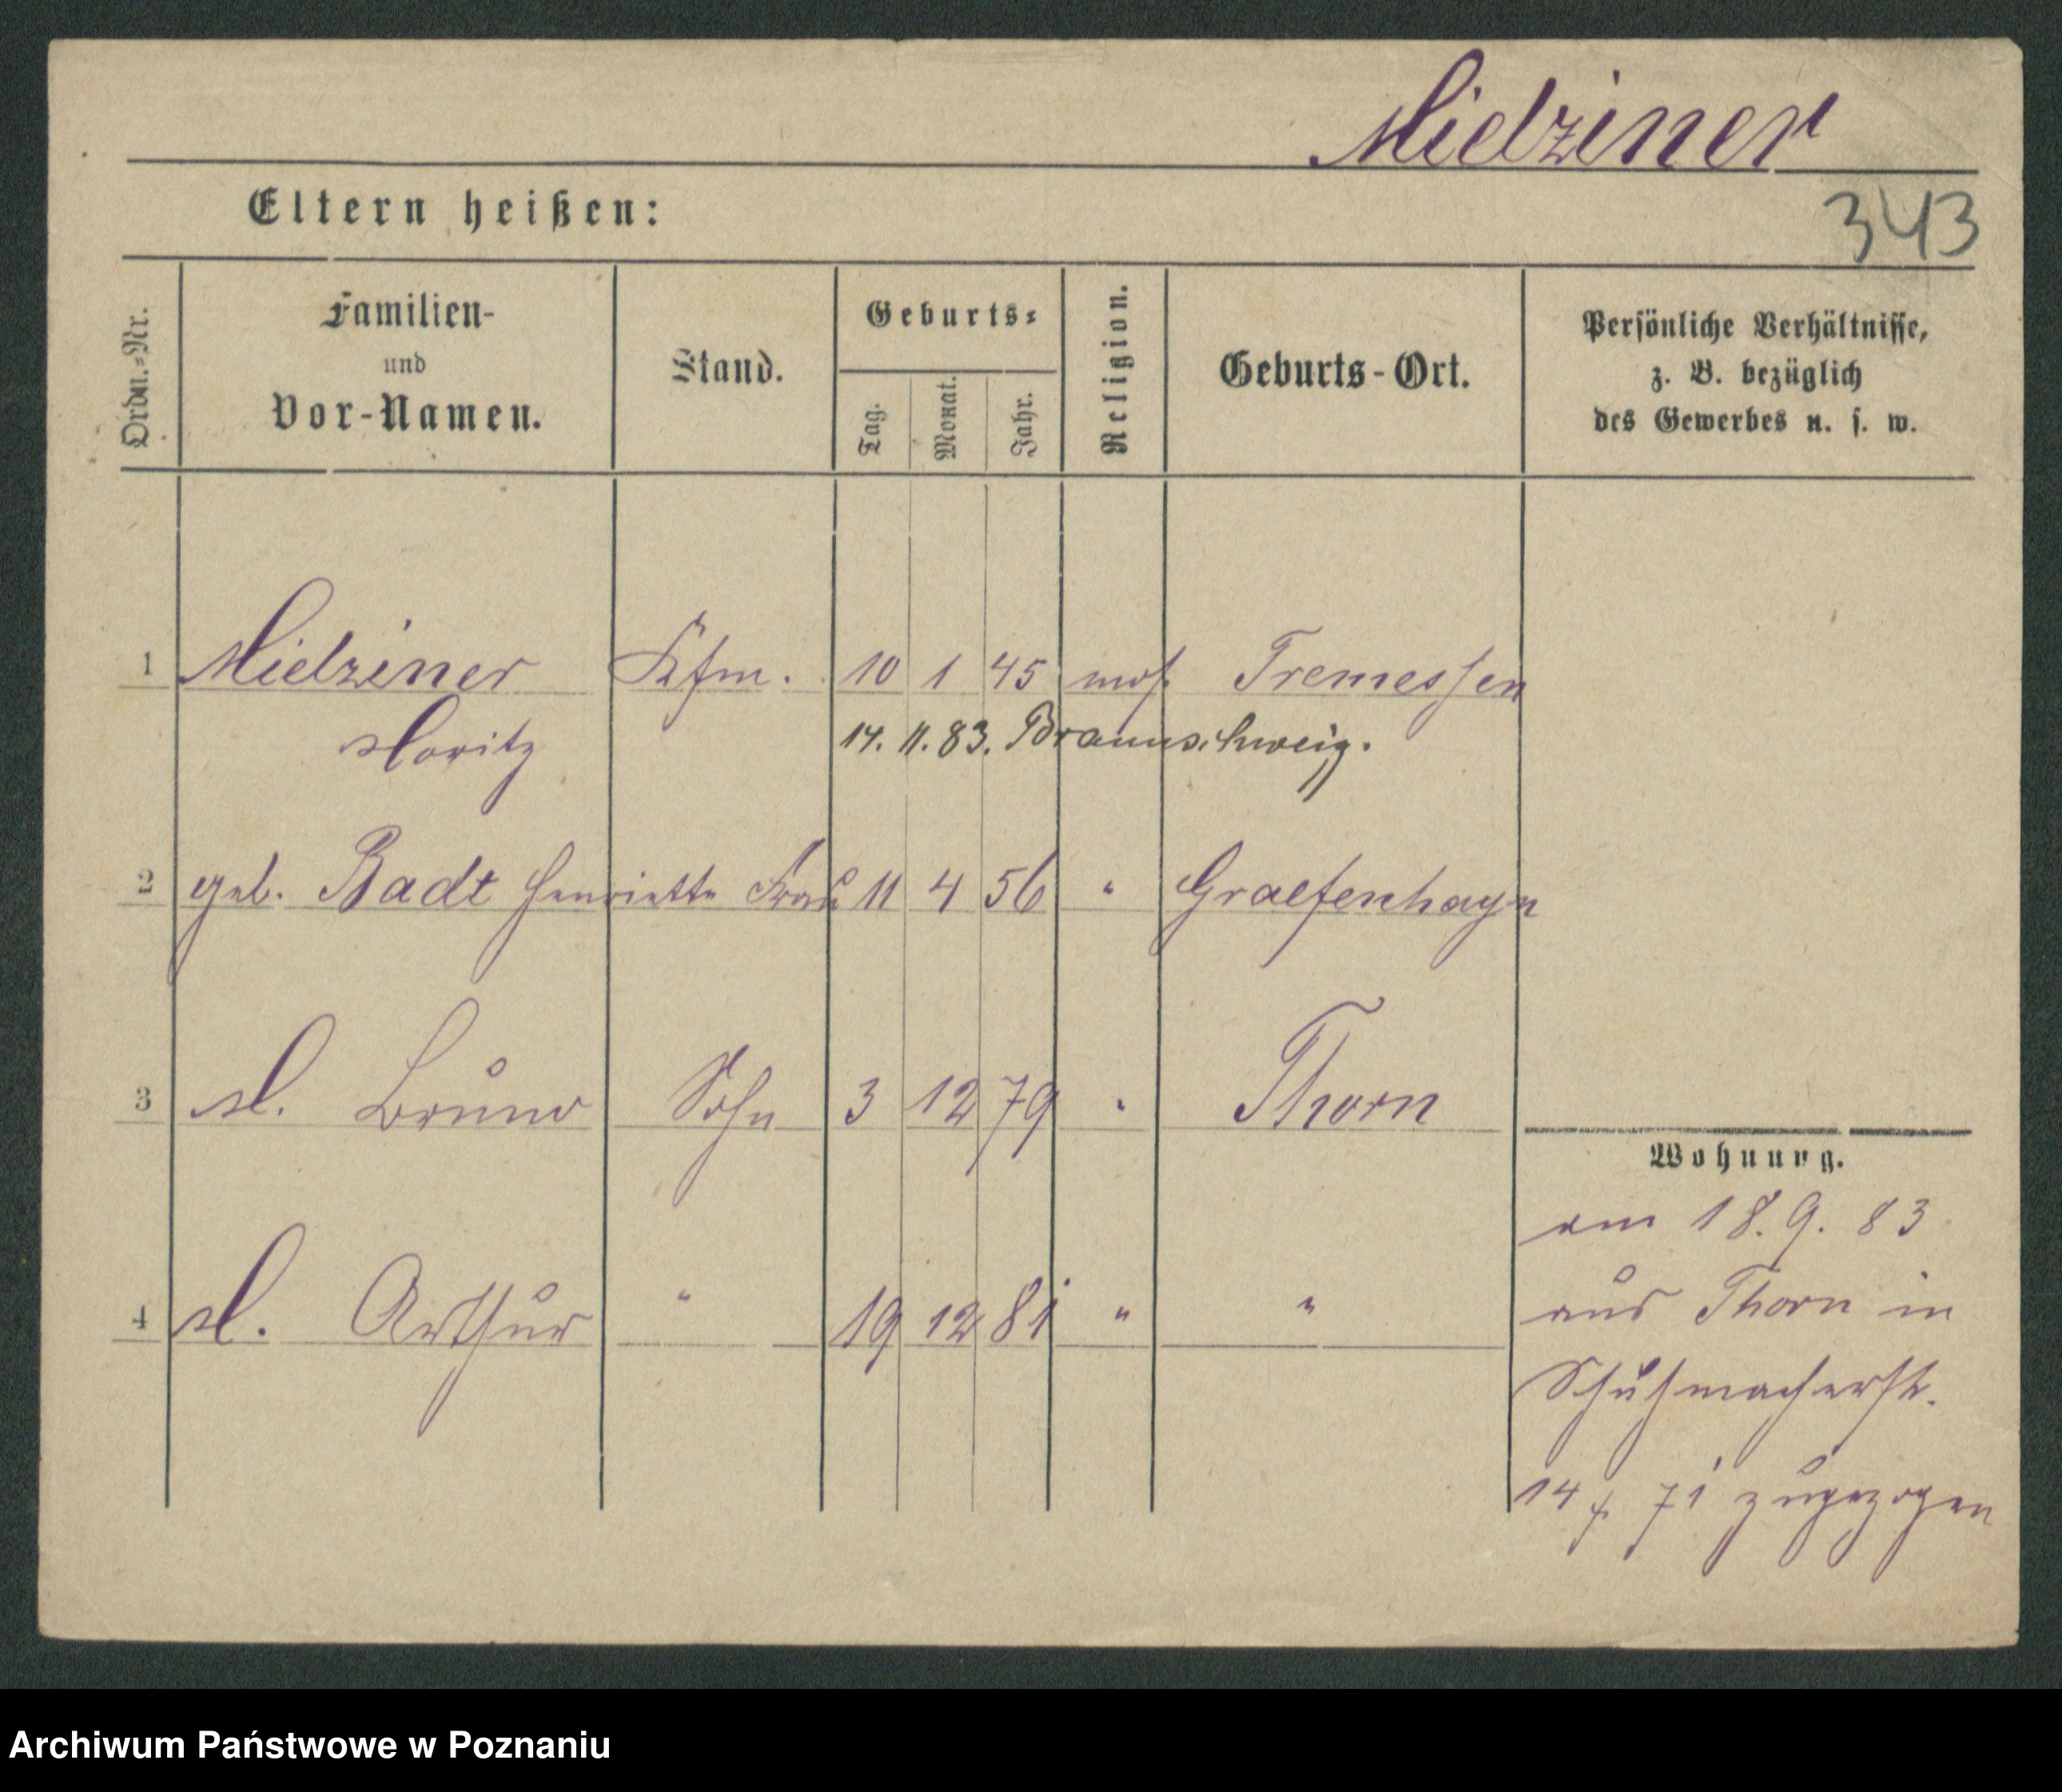 Mielziner
343
Eltern heißen:
Ordn.=Nr.
Familien-
und
Vor-Namen.
Stand.
Geburts=
Tag.
Monat.
Jahr.
Religion.
Geburts-Ort.
Persönliche Verhältnisse,
z. B. bezüglich
des Gewerbes u. s. w.
1 Mielziner Kfm. 10 1 45 mos. Tremessen
Moritz 14. 11. 83. Braunschweig.
2 geb. Badt Henriette Frau 11 4 56 " Graefenhayn
3 M. Bruno Sohn 3 12 79 " Thorn
4 M. Arthur " 19 12 81 " "
Wohnung.
am 18. 9. 83
aus Thorn in
Schuhmacherstr.
14 f. 71 zugezogen
Archiwum Państwowe w Poznaniu